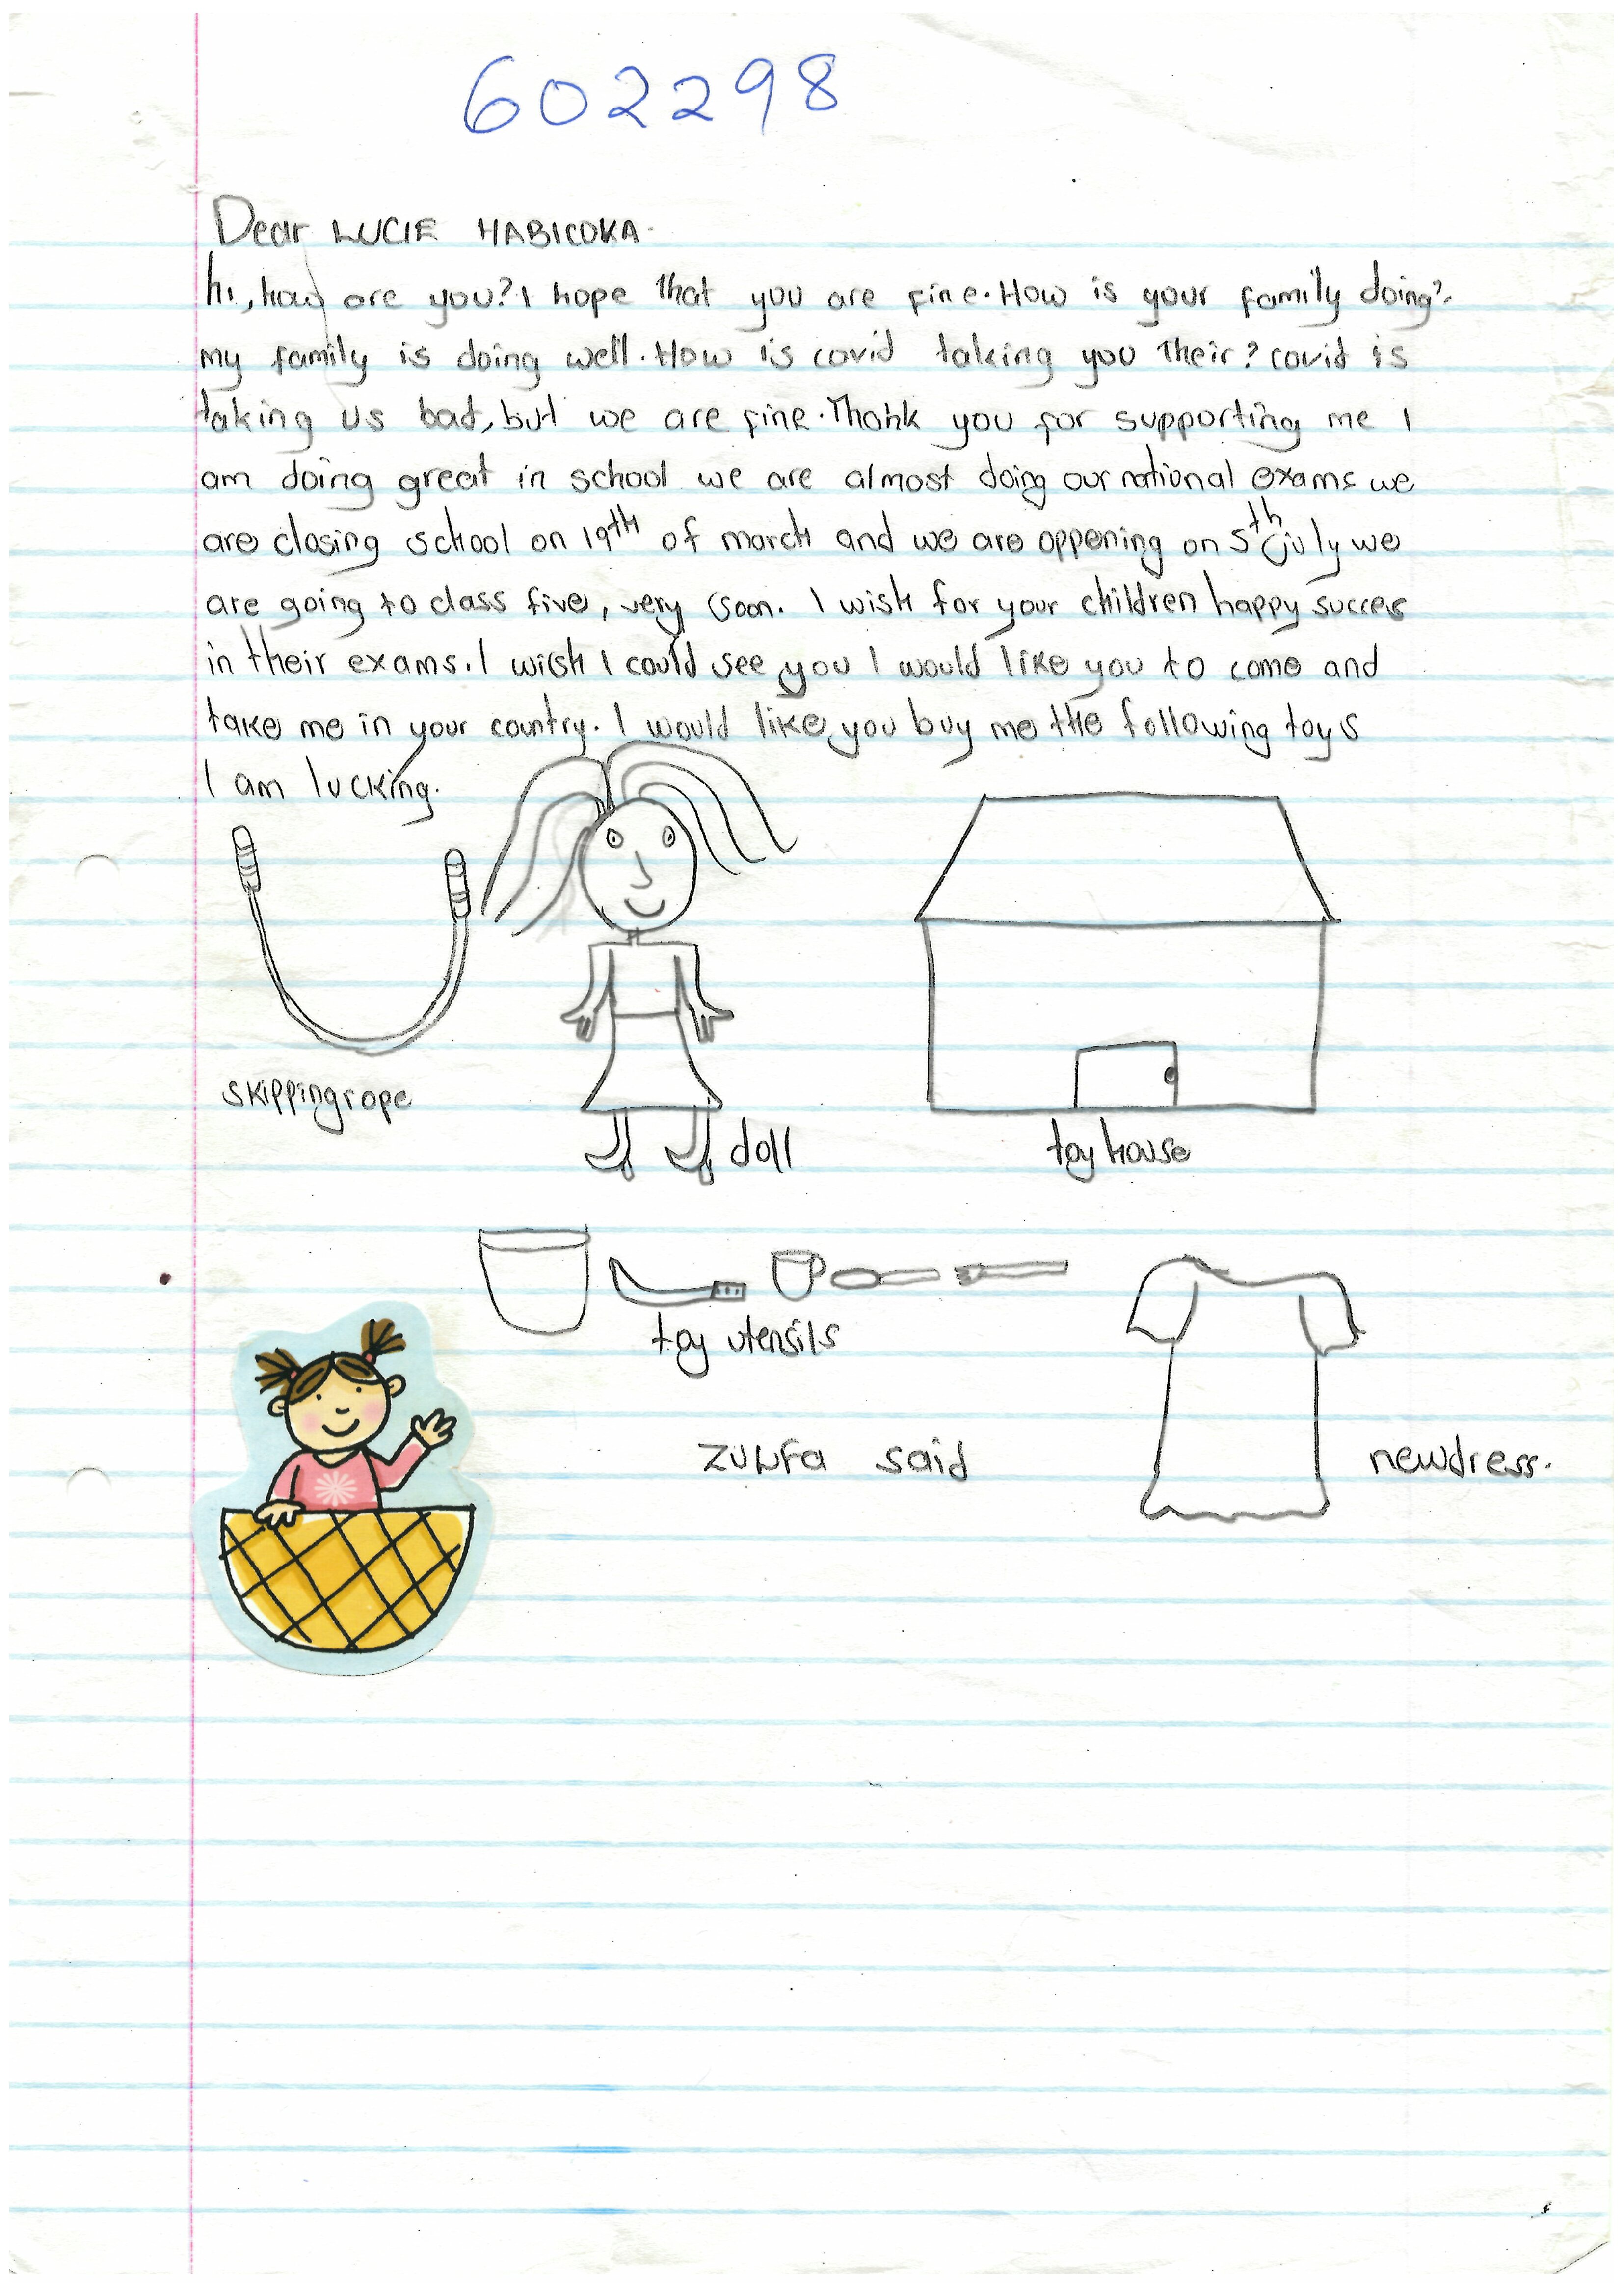 602298
Dear LUCIE HABICOKA.
hi, how are you? I hope that you are fine. How is your family doing?
my family is doing well. How is covid taking you their? covid is
taking us bad, but we are fine. Thank you for supporting me I
am doing great in school we are almost doing our national exams we
are closing school on 19th of march and we are oppening on 5th july we
are going to class five, very soon. I wish for your children happy succes
in their exams. I wish I could see you I would like you to come and
take me in your country. I would like you buy me the following toys
I am lucking.
skippingrope
doll
toy house
toy utensils
zulfa said
newdress.